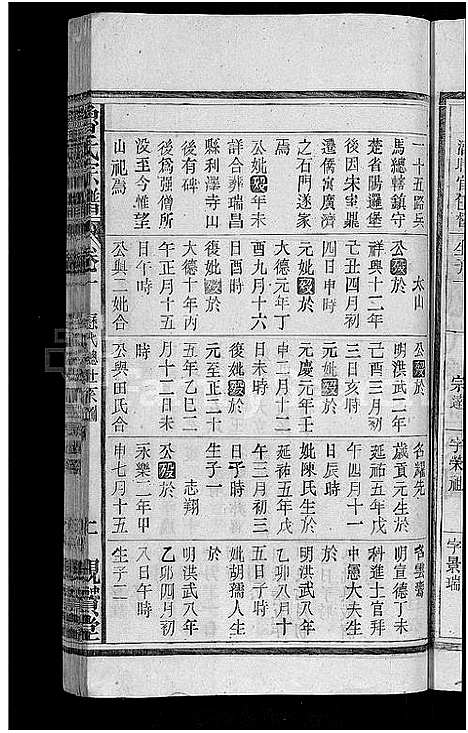 一十五路兵
馬總轄鎮守
楚省陽邏堡
後因宋室鼎
遷僑寓廣濟
之石門遂家
焉
公妣歿年未
詳合葬瑞昌
縣利澤寺山
後有碑
後為強僧所
没至今惟望
山祀焉
太山
公歿於
祥興十二年
己丑四月初
四日申時
元妣歿於
大德元年丁
酉九月十六
日酉時
後妣歿於
大德十年丙
午正月十五
日午時
公與二妣合
公歿於
明洪武二年
己酉三月初
三日亥時
元妣歿於
元慶元年壬
申二月十二
日未時
後妣歿於
元至正十二
五年乙巳二
月十二日未
時
公與田氏合
名耀先
歲貢元生於
延祐五年戊
午四月十一
日辰時
妣陳氏生於
延祐五年戊
午三月初三
日子時
生子一
志翔
公歿於
永樂二年甲
申七月十五
明宣德丁未
科進士官拜
中憲大夫生
於
明洪武八年
乙卯八月十
五日子時
妣胡孺人生
於
明洪武八年
乙卯四月初
八日午時
生子二
宗遠
字榮祖
字景瑞
卷一
歷代總世系圖
上
親賢堂